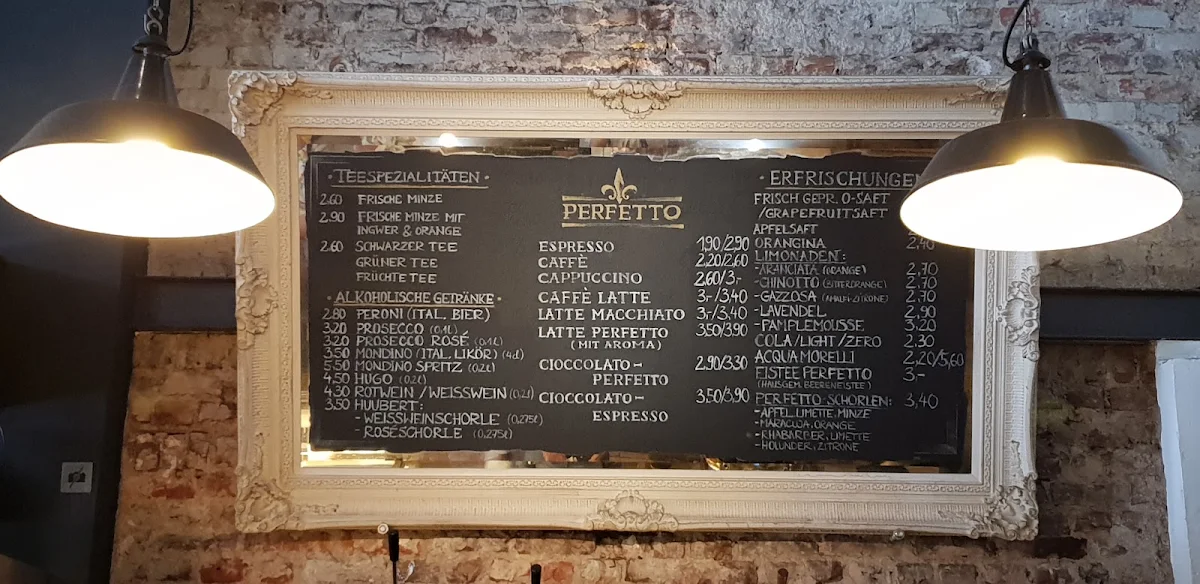 · TEESPEZIALITÄTEN ·
2.60 FRISCHE MINZE
2.90 FRISCHE MINZE MIT
INGWER & ORANGE
2.60 SCHWARZER TEE
GRÜNER TEE
FRÜCHTE TEE
· ALKOHOLISCHE GETRÄNKE ·
2.80 PERONI (ITAL. BIER)
3.20 PROSECCO (0,1L)
3.20 PROSECCO ROSÉ (0,1L)
3.50 MONDINO (ITAL. LIKÖR) (4cl)
5.50 MONDINO SPRITZ (0,2l)
4.50 HUGO (0,2l)
4.30 ROTWEIN / WEISSWEIN (0,2l)
3.50 HUUBERT:
- WEISSWEINSCHORLE (0,275l)
- ROSÉSCHORLE (0,275l)
PERFETTO
ESPRESSO 1.90/2.90
CAFFÈ 2.20/2.60
CAPPUCCINO 2.60/3.-
CAFFÈ LATTE 3.-/3.40
LATTE MACCHIATO 3.-/3.40
LATTE PERFETTO 3.50/3.90
(MIT AROMA)
CIOCCOLATO- 2.90/3.30
PERFETTO
CIOCCOLATO- 3.50/3.90
ESPRESSO
· ERFRISCHUNGEN
FRISCH GEPR. O-SAFT
/GRAPEFRUITSAFT
APFELSAFT
ORANGINA 2,40
LIMONADEN:
-ARANCIATA (ORANGE) 2,70
-CHINOTTO (BITTERORANGE) 2.70
-GAZZOSA (AMALFI-ZITRONE) 2.70
-LAVENDEL 2,90
-PAMPLEMOUSSE 3.20
COLA/LIGHT/ZERO 2.30
ACQUA MORELLI 2,20/5,60
EISTEE PERFETTO 3,-
(HAUSGEM. BEERENEISTEE)
PERFETTO-SCHORLEN: 3,40
- APFEL, LIMETTE, MINZE
- MARACUJA, ORANGE
- RHABARBER, LIMETTE
- HOLUNDER, ZITRONE